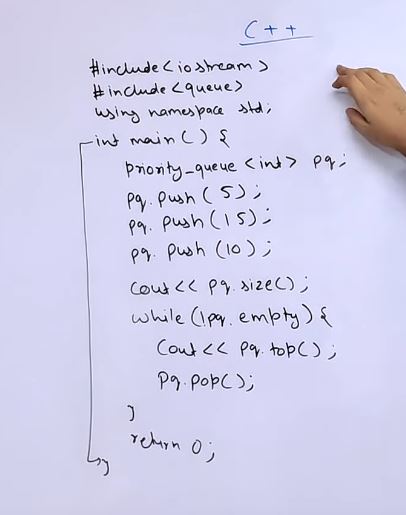 C++
#include<iostream>
#include<queue>
using namespace std;
int main() {
priority_queue <int> pq;
pq.push(5);
pq.push(15);
pq.push(10);
cout<< pq.size();
while(!pq.empty) {
cout<< pq.top();
pq.pop();
}
return 0;
}